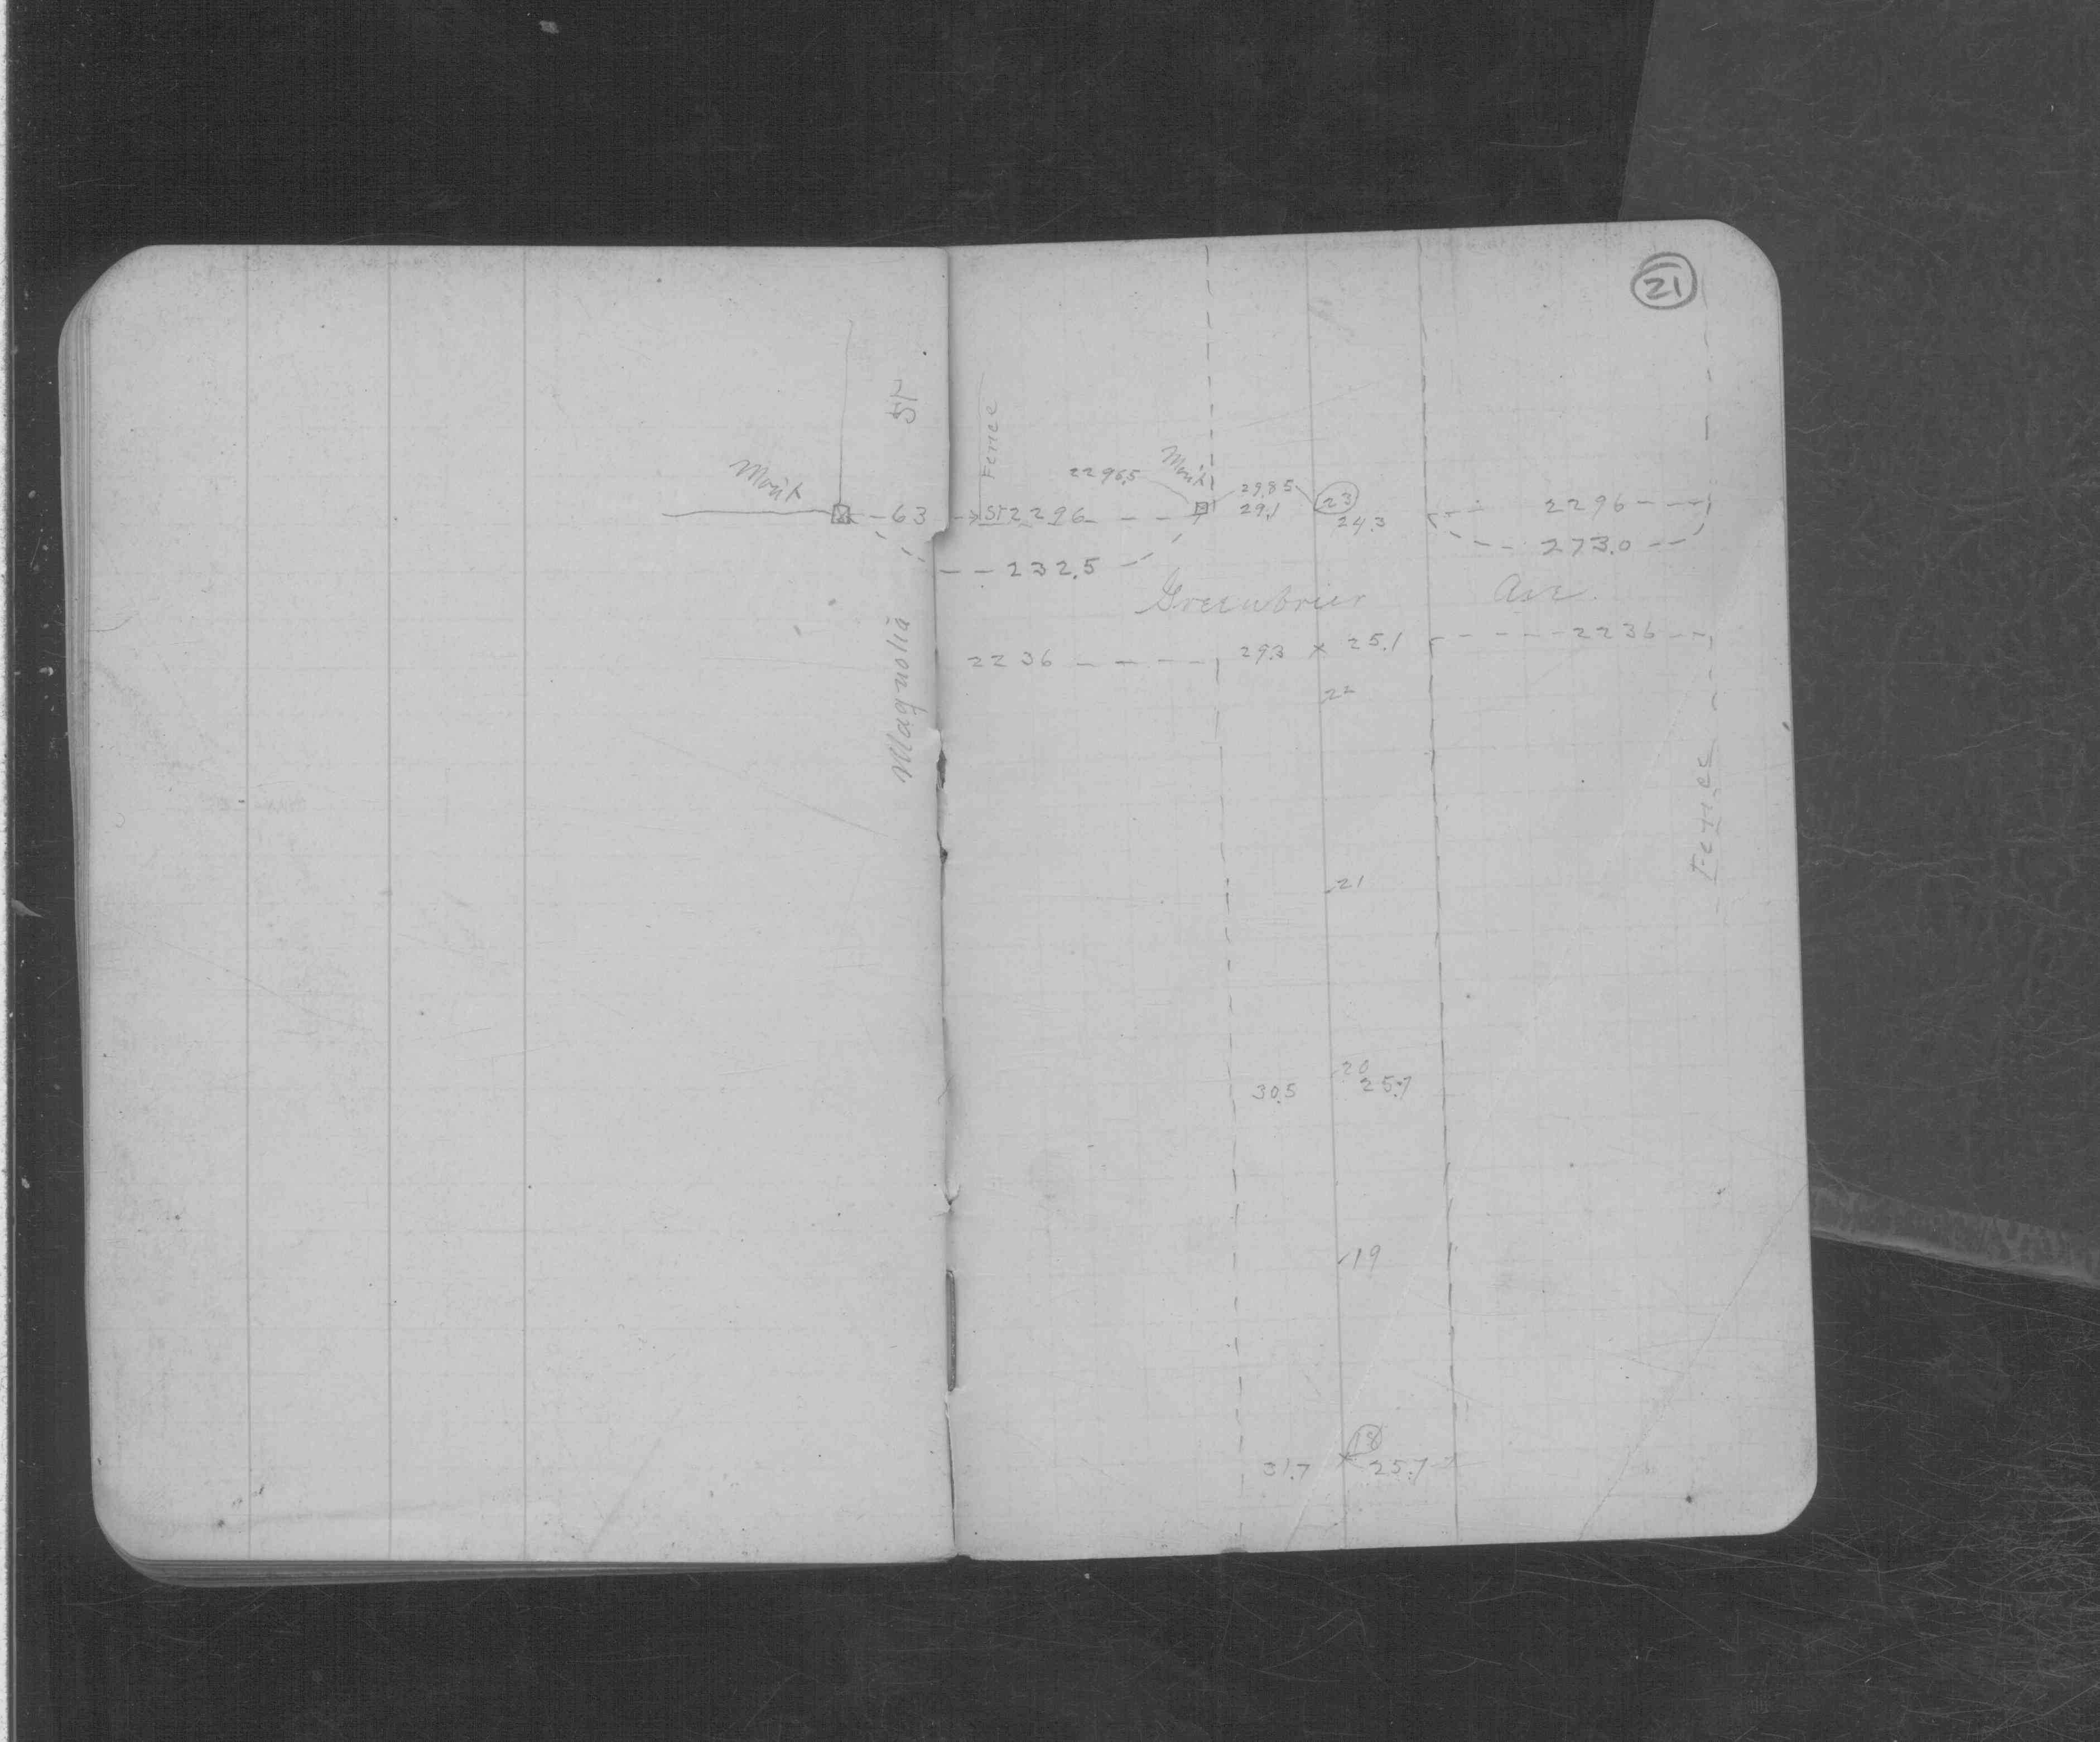 21
ST
Fence
Mon't
2296.5
Mon't
29.85
23
63
ST 2296
29.1
24.3
2296
273.0
232.5
Greenbrier Ave.
Magnolia
2236
29.3 x 25.1
2236
22
Fence
21
20
30.5
25.7
19
18
31.7
25.7